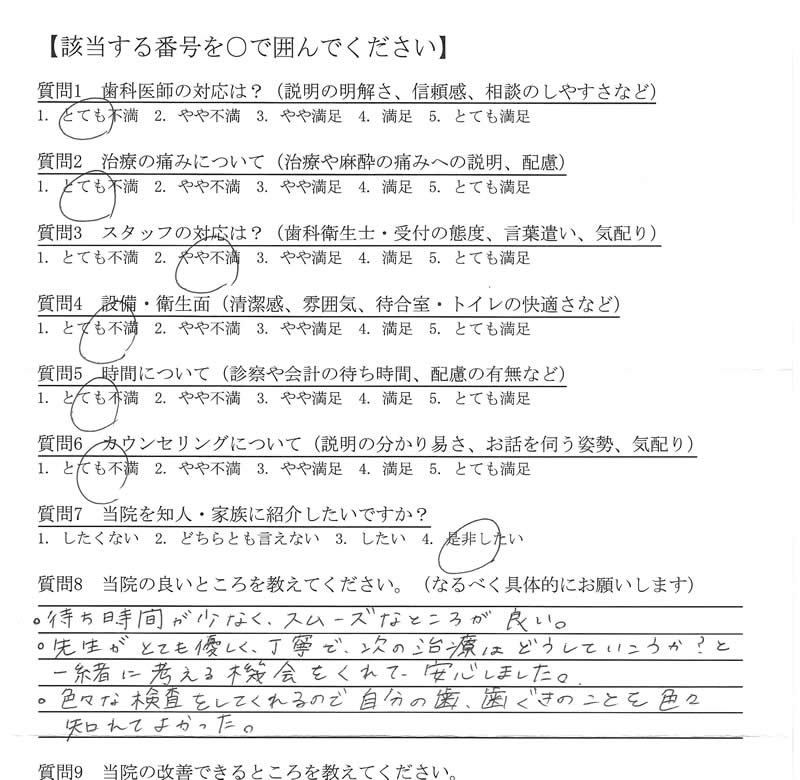 【該当する番号を○で囲んでください】
質問1　歯科医師の対応は？（説明の明解さ、信頼感、相談のしやすさなど）
1. とても不満　2. やや不満　3. やや満足　4. 満足　5. とても満足
質問2　治療の痛みについて（治療や麻酔の痛みへの説明、配慮）
1. とても不満　2. やや不満　3. やや満足　4. 満足　5. とても満足
質問3　スタッフの対応は？（歯科衛生士・受付の態度、言葉遣い、気配り）
1. とても不満　2. やや不満　3. やや満足　4. 満足　5. とても満足
質問4　設備・衛生面（清潔感、雰囲気、待合室・トイレの快適さなど）
1. とても不満　2. やや不満　3. やや満足　4. 満足　5. とても満足
質問5　時間について（診察や会計の待ち時間、配慮の有無など）
1. とても不満　2. やや不満　3. やや満足　4. 満足　5. とても満足
質問6　カウンセリングについて（説明の分かり易さ、お話を伺う姿勢、気配り）
1. とても不満　2. やや不満　3. やや満足　4. 満足　5. とても満足
質問7　当院を知人・家族に紹介したいですか？
1. したくない　2. どちらとも言えない　3. したい　4. 是非したい
質問8　当院の良いところを教えてください。（なるべく具体的にお願いします）
。待ち時間が少なく、スムーズなところが良い。
。先生がとても優しく、丁寧で、次の治療はどうしていこうか？と
一緒に考える機会をくれて、安心しました。
。色々な検査をしてくれるので自分の歯、歯ぐきのことを色々
知れてよかった。
質問9　当院の改善できるところを教えてください。